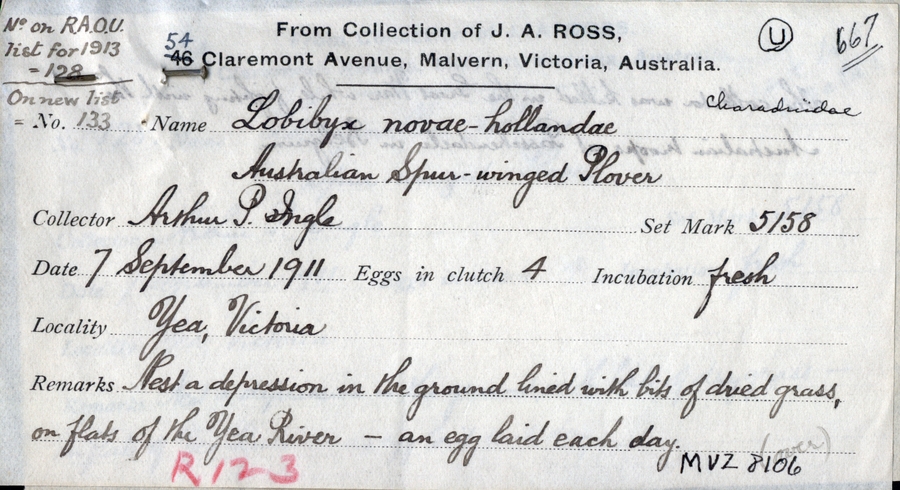 Nº on R.A.O.U.
list for 1913
= 128
On new list
= No. 133
From Collection of J. A. ROSS,
54
46 Claremont Avenue, Malvern, Victoria, Australia.
U
667
Charadriidae
Name Lobibyx novae-hollandae
Australian Spur-winged Plover
Collector Arthur P. Ingle Set Mark 5158
Date 7 September 1911 Eggs in clutch 4 Incubation fresh
Locality Yea, Victoria
Remarks Nest a depression in the ground lined with bits of dried grass,
on flats of the Yea River – an egg laid each day.
(over)
R12-3
MVZ 8106